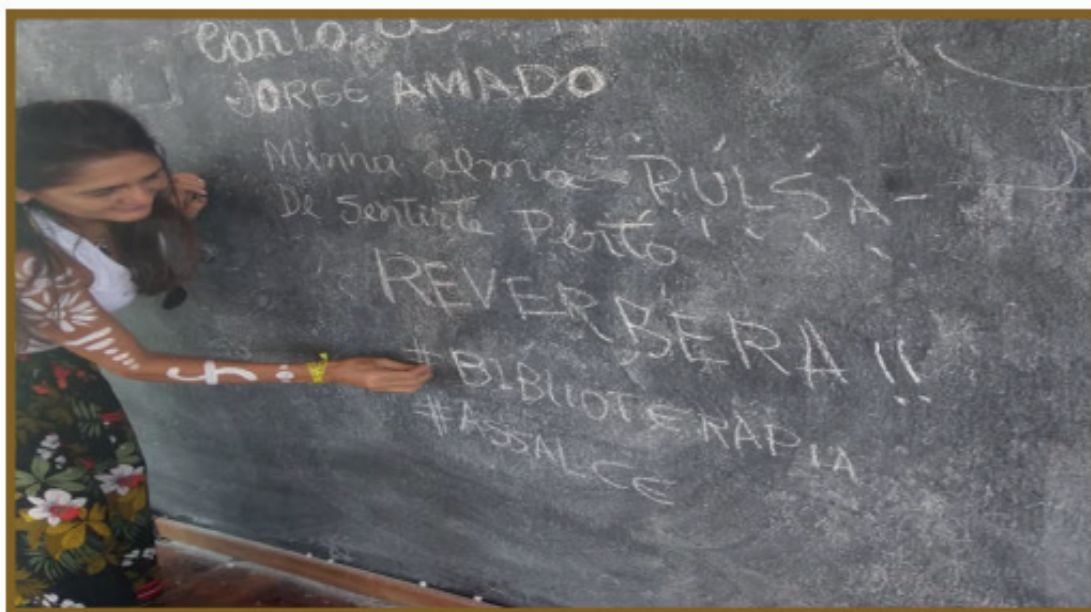 JORGE AMADO
Minha alma PÚLSA-
De Sentirte Perto
REVERBERA!!
#BIBLIOTERAPIA
#ASSALCE